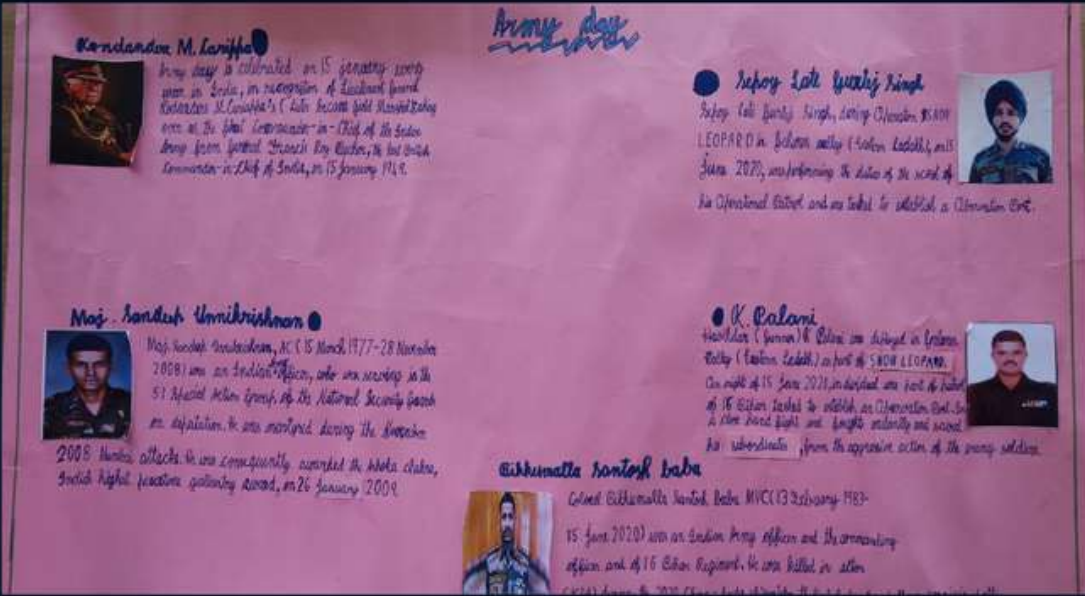 Army day
Kondandra M. Carippa
Army day is celebrated on 15 january every
year in India, in recognition of Lieutenant General
Kodandera M. Cariappa's (later became field Marshal) taking
over as the first Commander-in-Chief of the Indian
Army from General Francis Roy Bucher, the last British
Commander-in-Chief of India, on 15 January 1949.
Sepoy Late Gurtej Singh
Sepoy Late Gurtej Singh, during Operation SNOW
LEOPARD in Galwan valley (Eastern Ladakh), on 15
June 2020, was performing the duties of the scout of
his Operational Patrol and was tasked to establish a Observation Post.
Maj. Sandeep Unnikrishnan
Maj. Sandeep Unnikrishnan, AC (15 March 1977-28 November
2008) was an Indian officer, who was serving in the
51 Special Action Group of the National Security Guards
on deputation. He was martyred during the November
2008 Mumbai attacks. He was consequently awarded the Ashoka chakra,
India's highest peacetime gallantry award, on 26 January 2009.
K. Palani
Havildar (Gunner) K Palani was deployed in Galwan
Valley (Eastern Ladakh) as part of SNOW LEOPARD.
On night of 15 June 2020, individual was part of patrol
of 16 Bihar tasked to establish an Observation Post. In
a close hand fight and fought valiantly and saved
his subordinates, from the aggressive action of the enemy soldiers.
Bikkumalla Santosh babu
Colonel Bikkumalla Santosh babu MVC (13 February 1983-
15 June 2020) was an Indian Army officer and the commanding
officer and of 16 Bihar Regiment. He was killed in action